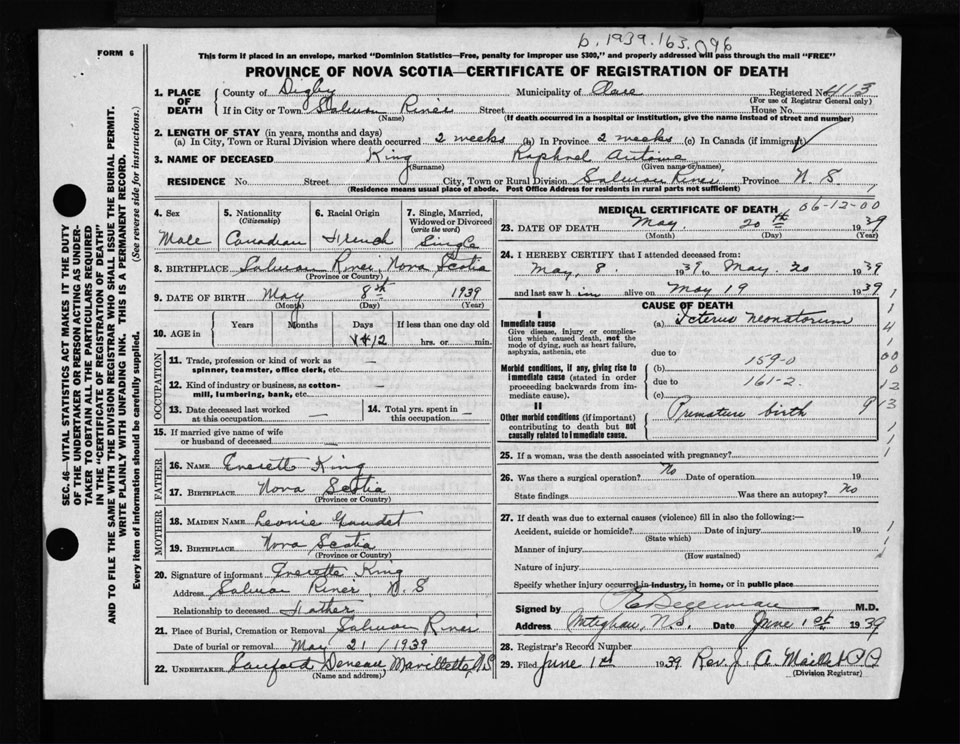 b. 1939.163.096
FORM 6
This form if placed in an envelope, marked "Dominion Statistics—Free, penalty for improper use $300," and properly addressed will pass through the mail "FREE"
PROVINCE OF NOVA SCOTIA—CERTIFICATE OF REGISTRATION OF DEATH
SEC. 46—VITAL STATISTICS ACT MAKES IT THE DUTY
OF THE UNDERTAKER OR PERSON ACTING AS UNDER-
TAKER TO OBTAIN ALL THE PARTICULARS REQUIRED
IN THE "CERTIFICATE OF REGISTRATION OF DEATH"
AND TO FILE THE SAME WITH THE DIVISION REGISTRAR WHO SHALL ISSUE THE BURIAL PERMIT.
WRITE PLAINLY WITH UNFADING INK. THIS IS A PERMANENT RECORD.
Every item of information should be carefully supplied. (See reverse side for instructions.)
1. PLACE OF DEATH County of Digby Municipality of Clare Registered No. 4113
(For use of Registrar General only)
If in City or Town Salmon River Street House No.
(Name) (If death occurred in a hospital or institution, give the name instead of street and number)
2. LENGTH OF STAY (in years, months and days)
(a) In City, Town or Rural Division where death occurred 2 weeks (b) In Province 2 weeks (c) In Canada (if immigrant)
3. NAME OF DECEASED King Raphael Antoine
(Surname) (Given name or names)
RESIDENCE No. Street City, Town or Rural Division Salmon River Province N. S
(Residence means usual place of abode. Post Office Address for residents in rural parts not sufficient)
4. Sex
Male
5. Nationality
(Citizenship)
Canadian
6. Racial Origin
French
7. Single, Married,
Widowed or Divorced
(write the word)
Single
8. BIRTHPLACE Salmon River, Nova Scotia
(Province or Country)
9. DATE OF BIRTH May 8th 1939
(Month) (Day) (Year)
10. AGE in Years Months Days If less than one day old
12 hrs. or min.
OCCUPATION
11. Trade, profession or kind of work as —
spinner, teamster, office clerk, etc.
12. Kind of industry or business, as cotton- —
mill, lumbering, bank, etc.
13. Date deceased last worked —
at this occupation
14. Total yrs. spent in —
this occupation
15. If married give name of wife
or husband of deceased —
FATHER
16. NAME Everett King
17. BIRTHPLACE Nova Scotia
(Province or Country)
MOTHER
18. MAIDEN NAME Leonie Gaudet
19. BIRTHPLACE Nova Scotia
(Province or Country)
20. Signature of informant Everette King
Address Salmon River, N. S
Relationship to deceased Father
21. Place of Burial, Cremation or Removal Salmon River
Date of burial or removal May 21 / 1939
22. UNDERTAKER Sanford Deneau
(Name and address)
MEDICAL CERTIFICATE OF DEATH 06-12-00
23. DATE OF DEATH May 20th 1939
(Month) (Day) (Year)
24. I HEREBY CERTIFY that I attended deceased from:
May, 8. 1939 to May. 20 1939
and last saw him alive on May 19 1939
CAUSE OF DEATH
I
Immediate cause
Give disease, injury or complica-
tion which caused death, not the
mode of dying, such as heart failure,
asphyxia, asthenia, etc
(a) Icterus Neonatorum
due to
Morbid conditions, if any, giving rise to
immediate cause (stated in order
proceeding backwards from im-
mediate cause).
(b) 159-0
due to 161-2.
(c)
II
Other morbid conditions (if important)
contributing to death but not
causally related to immediate cause.
Premature birth
25. If a woman, was the death associated with pregnancy?
26. Was there a surgical operation? No Date of operation 19
State findings Was there an autopsy? No
27. If death was due to external causes (violence) fill in also the following:—
Accident, suicide or homicide? Date of injury 19
(State which)
Manner of injury
(How sustained)
Nature of injury
Specify whether injury occurred in industry, in home, or in public place
Signed by M.D.
Address Meteghan, N.S. Date June 1st 1939
28. Registrar's Record Number
29. Filed June 1st 1939 Rev. J. A. Maillet P.P.
(Division Registrar)